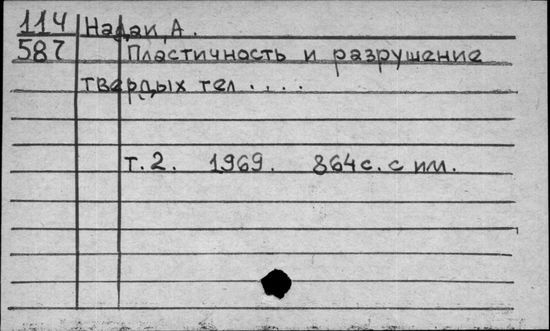 114 Надаи, А.
587 Пластичность и разрушение
твердых тел . . . .
т. 2. 1969. 864с. с им.